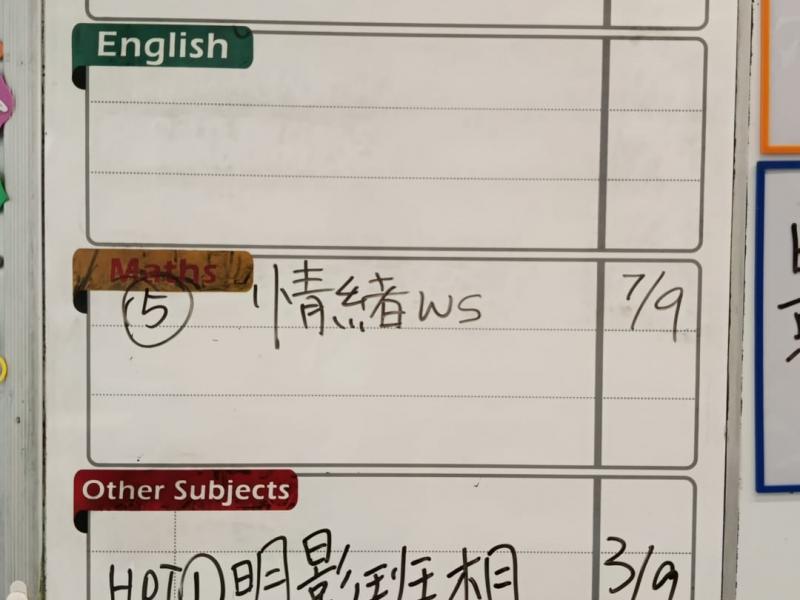 English
Maths
⑤ 情緒WS 7/9
Other Subjects
HPT① 明影班相 3/9